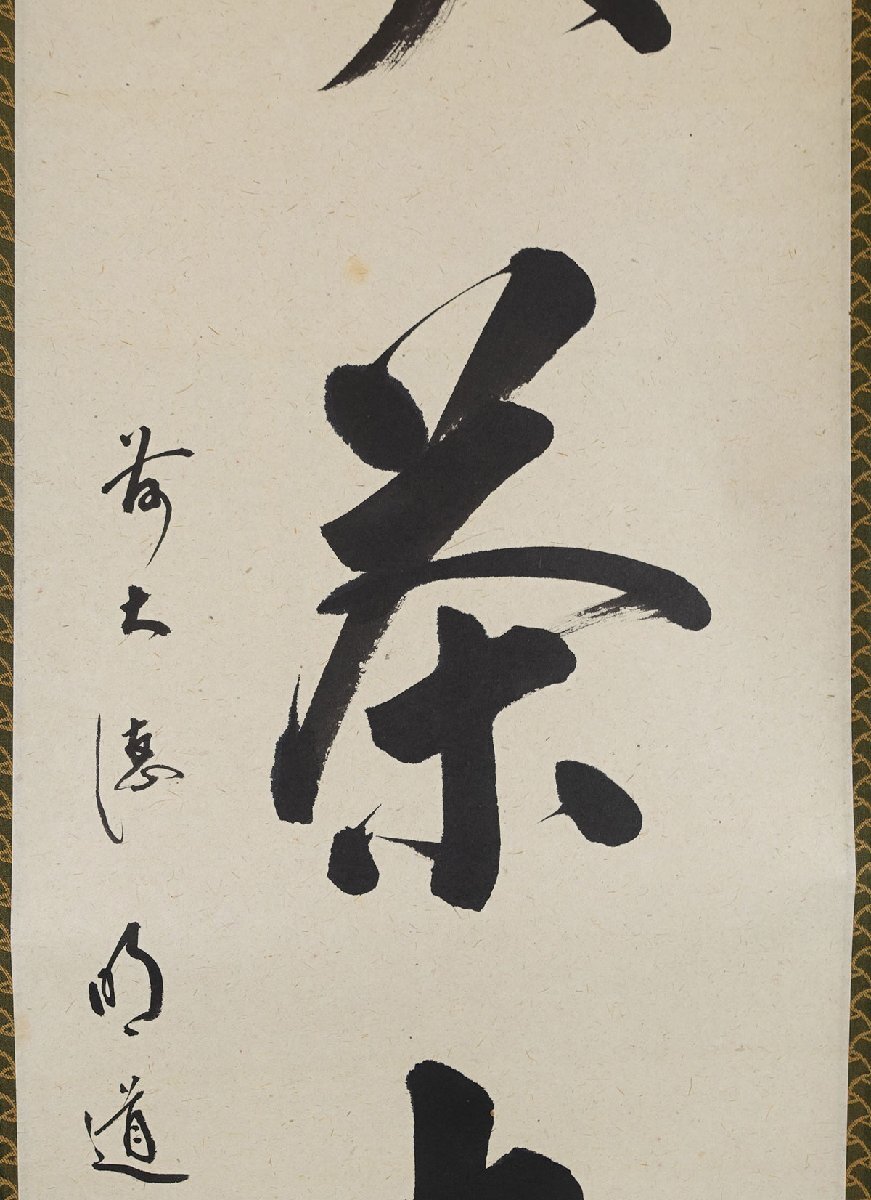 茶
前大徳明道